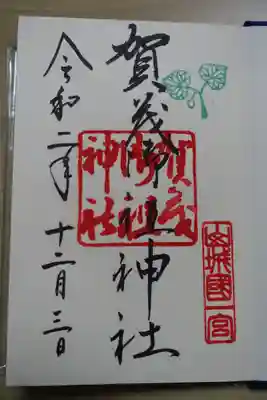 山城國一宮
賀茂御祖神社
賀茂御祖神社
令和二年十二月三日